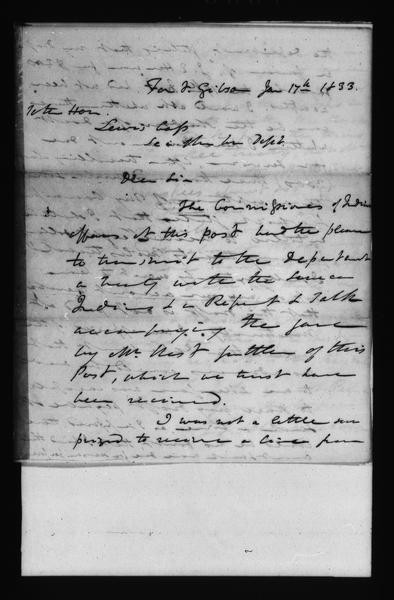 Fort Gibson Jan 17th 1833.
To the Hon.
Lewis Cass
Sec of the War Dept.
Dear Sir
The Commissioners of Indian
affairs at this post had the pleasure
to transmit to the Department
a treaty with the Seneca
Indians & a Report & Talk
accompanying the same
by Mr West suttler of this
Post, which we trust have
been received.
I was not a little sur
prized to receive a line from